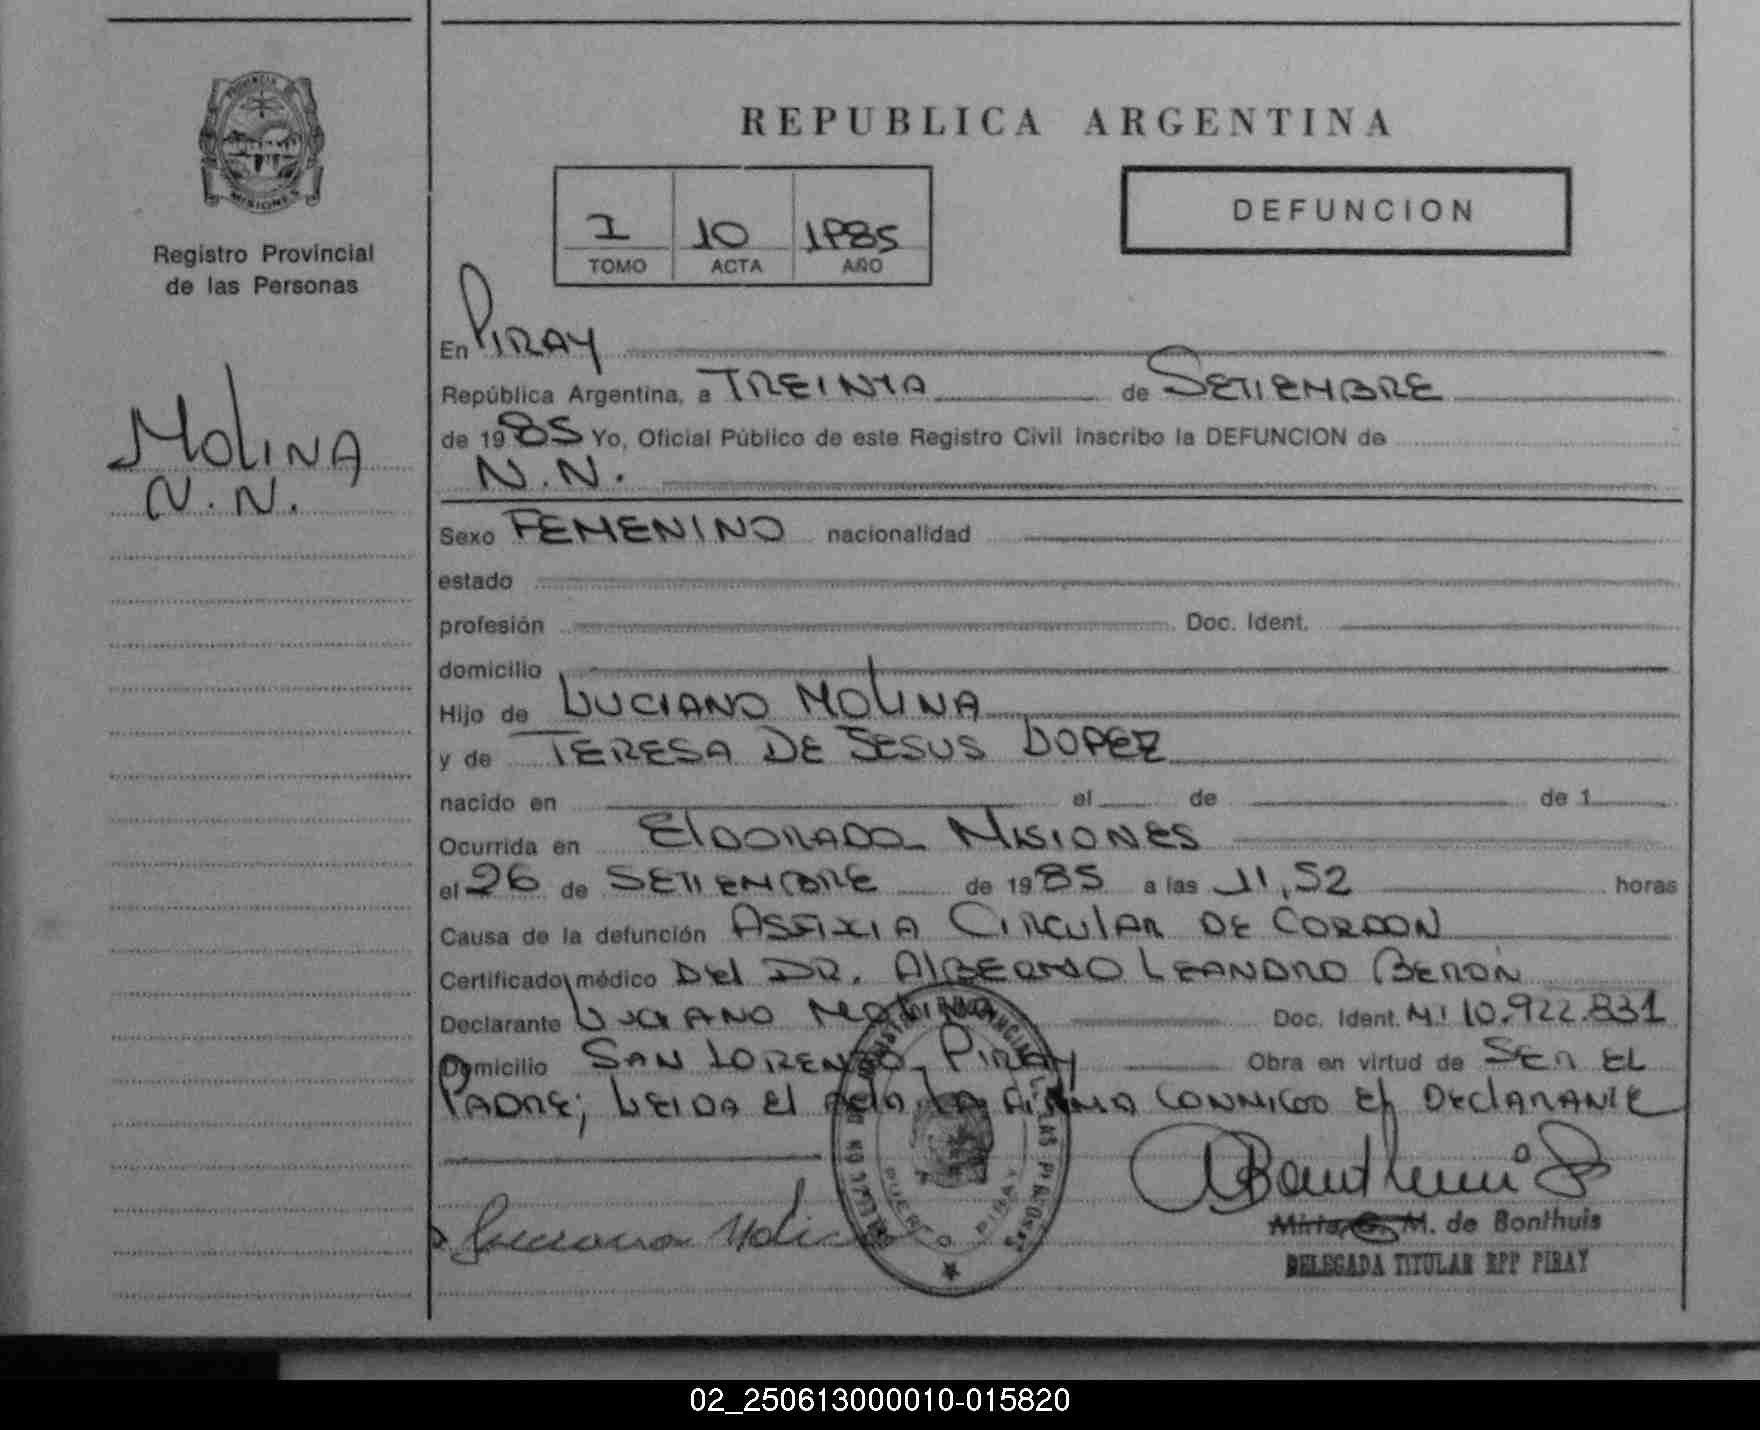 REPUBLICA ARGENTINA
PROVINCIA
MISIONES
Registro Provincial
de las Personas
MOLINA
N.N.
I 10 1985
TOMO ACTA AÑO
DEFUNCION
En PIRAY
República Argentina, a TREINTA de SETIEMBRE
de 1985 Yo, Oficial Público de este Registro Civil inscribo la DEFUNCION de
N.N.
Sexo FEMENINO nacionalidad
estado
profesión Doc. Ident.
domicilio
Hijo de LUCIANO MOLINA
y de TERESA DE JESUS LOPEZ
nacido en el de de 1
Ocurrida en ELDORADO - MISIONES
el 26 de SETIEMBRE de 1985 a las 11,52 horas
Causa de la defunción ASFIXIA CIRCULAR DE CORDON
Certificado médico DEL DR. ALBERTO LEANDRO BERON
Declarante LUCIANO MOLINA Doc. Ident. M.I 10.922.831
Domicilio SAN LORENZO - PIRAY Obra en virtud de SER EL
PADRE; LEIDA EL ACTA LA FIRMA CONMIGO EL DECLARANTE
PUERTO PIRAY
Luciano Molina
M. de Bonthuis
DELEGADA TITULAR RPP PIRAY
02_250613000010-015820